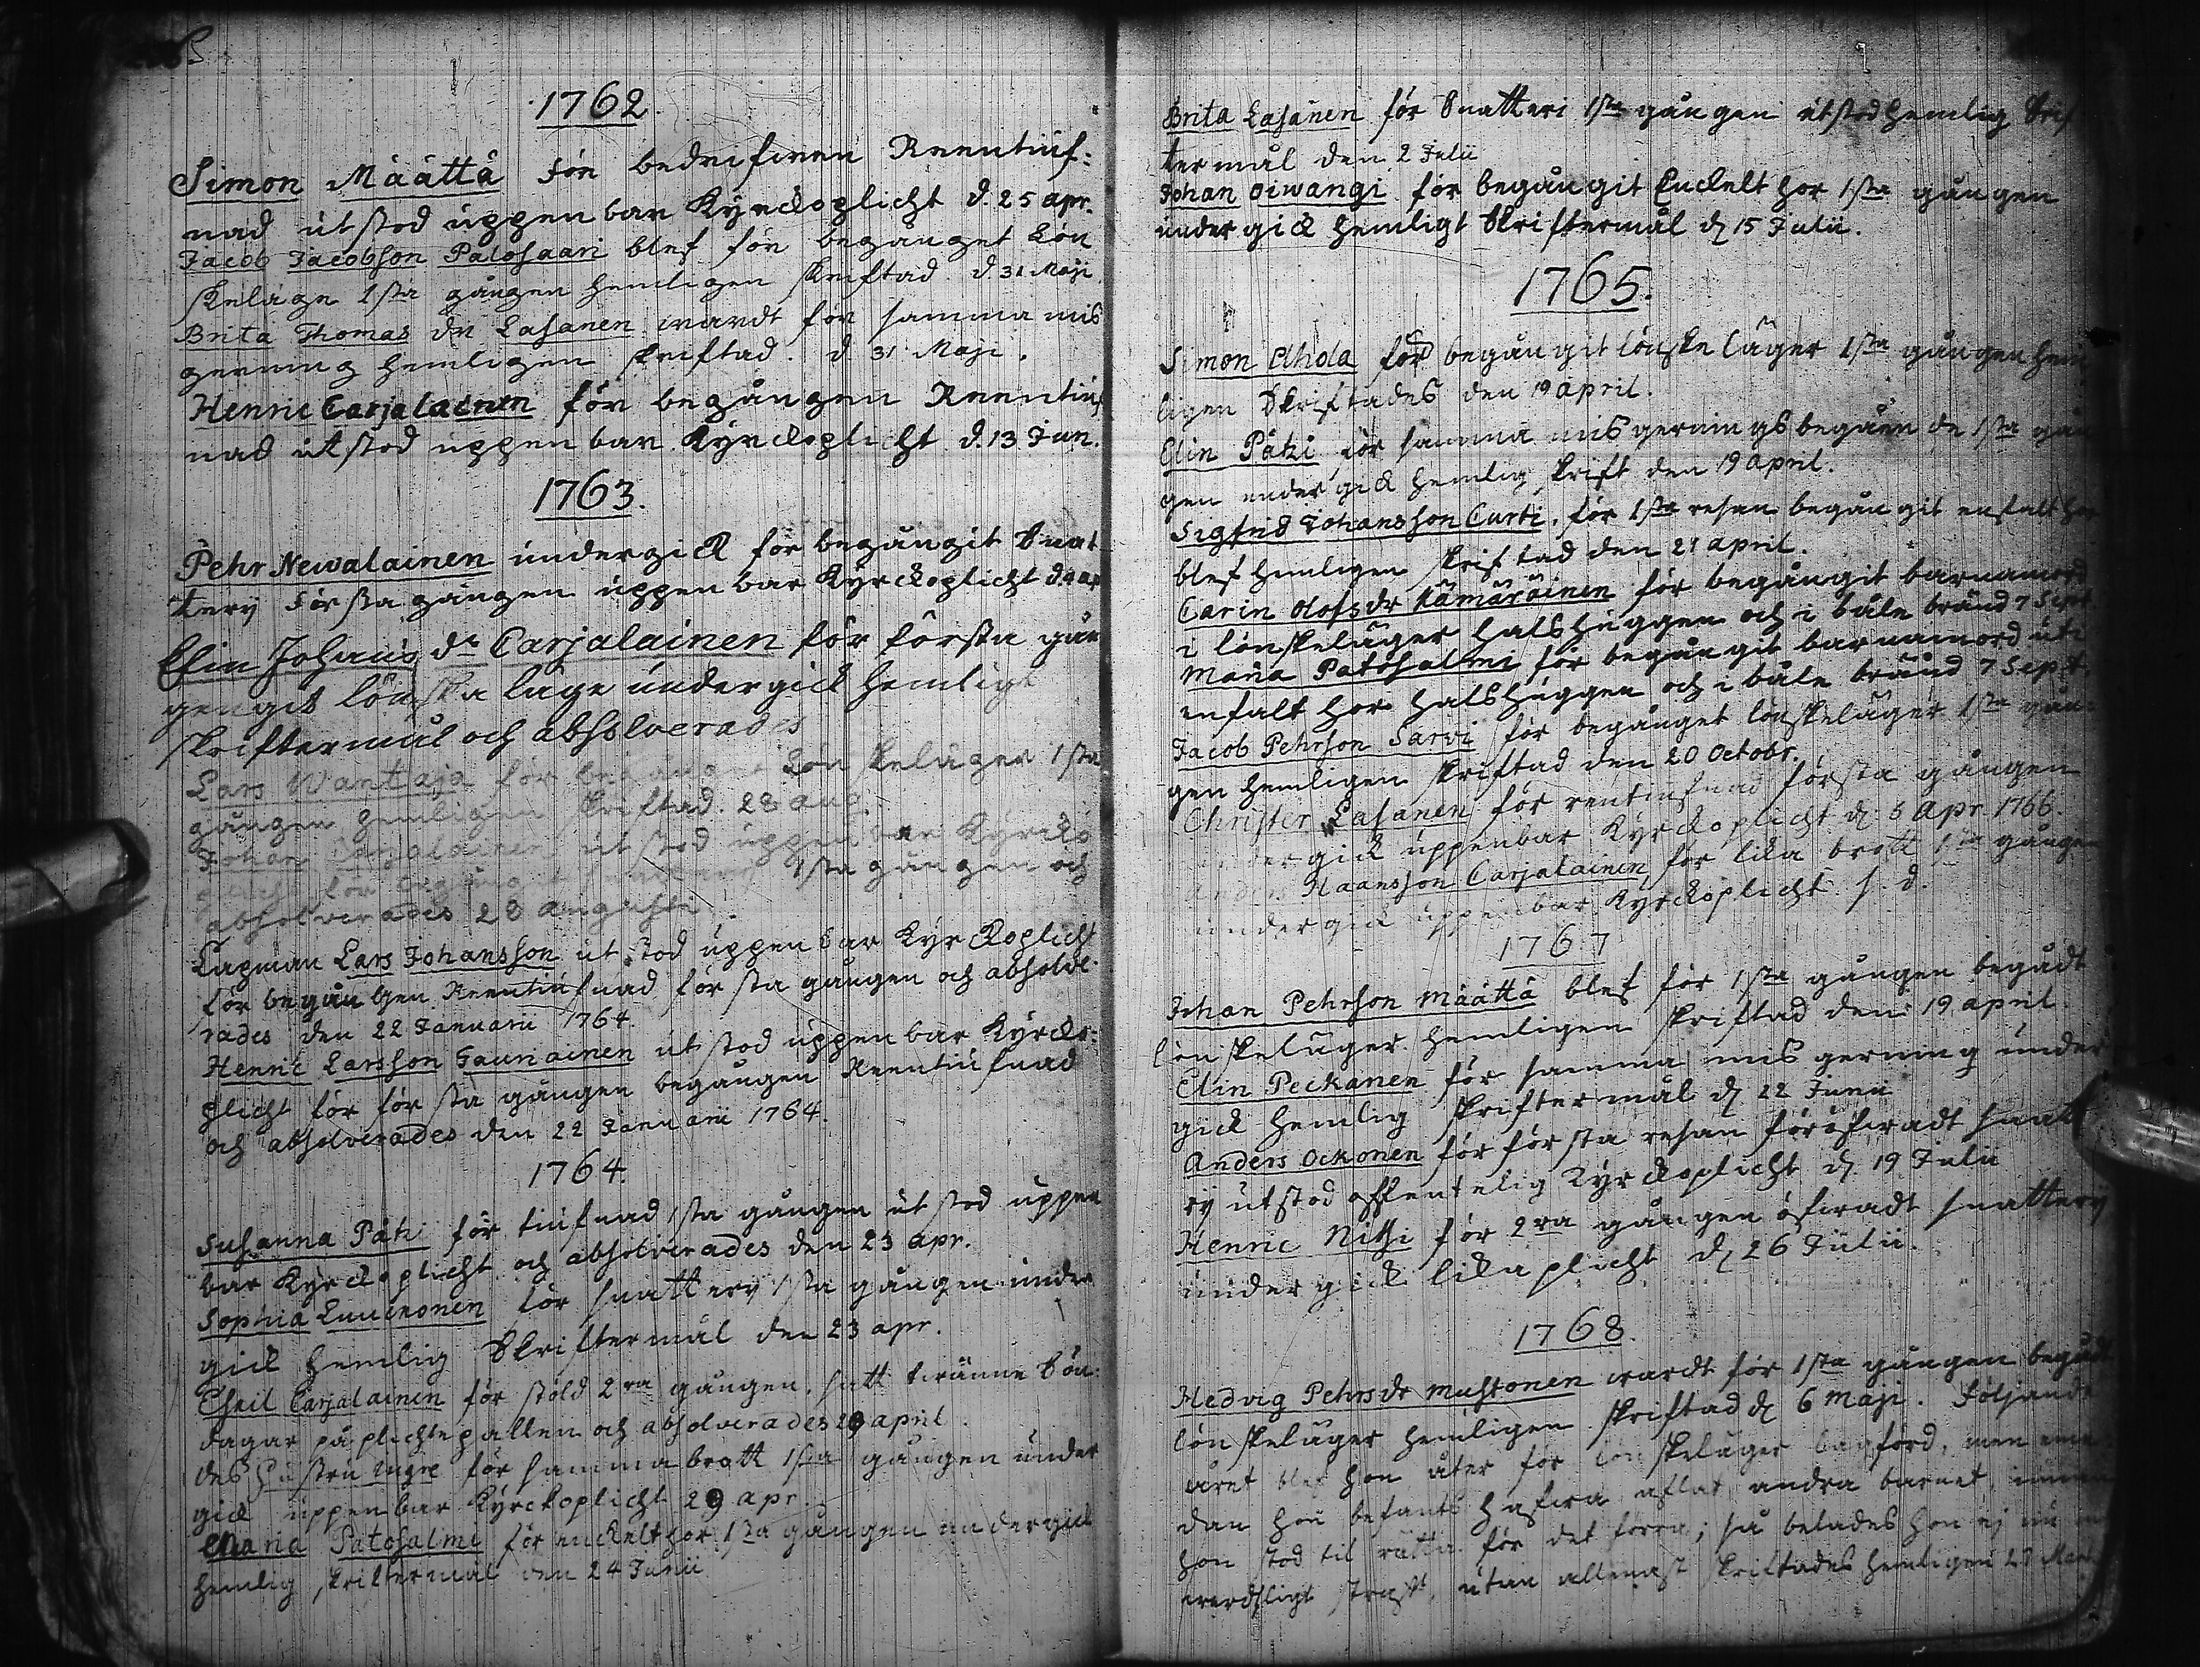 1762.
Simon Määttä för bedrifwen Reentiuf-
nad utstod uppenbar Kyrckoplicht d. 25 apr.
Jacob Jacobsson Palosaari blef för begånget Lön
skeläge 1sta gången hemligen skriftad d 31 Maji
Brita Thomas dr Lasanen wardt för samma mis
gerning hemligen skriftad. d 31 Maji.
Henric Carjalainen för begången Reentiuf
nad utstod uppenbar Kyrckoplicht d. 13 Jun.
1763.
Pehr Newalainen undergick för begångit Snat
tery första gången uppenbar Kyrckoplicht d. 4 ap
Elin Johans dr Carjalainen för första gån
gengit lönska läge undergick hemligt
skriftermål och absolverades
Lars Wantaja för begånget Lönskeläger 1sta
gången hemligen skriftad. 28 aug.
Johan Carjalainen utstod uppenbar Kyrcko
plicht för begånget 1sta gången och
absolverades 28 augusti.
Lapman Lars Johansson utstod uppenbar Kyrckoplicht
för begången Reentiufnad första gången och absolve-
rades den 22 Januarii 1764.
Henric Larsson Jauriainen utstod uppenbar Kyrcko-
plicht för första gången begången Reentiufnad
och absolverades den 22 Januarii 1764.
1764.
Susanna Pätzi för tiufnad 1sta gången utstod uppen
bar Kyrckoplicht och absolverades den 23 apr.
Sophia Luuckonen för snattery 1sta gången under
gick hemlig Skriftermål den 23 apr.
Eskil Carjalainen för stöld 2ra gången, satt twänne Bön-
dagar på plichtepallen och absolverades 29 april.
des hustru Ingre för samma brott 1sta gången under
gick uppenbar Kyrckoplicht 29 apr.
Maria Patosalmi för enckelt hor 1sta gången undergick
hemlig skriftermål den 24 Junii
Brita Lasanen för Snatteri 1sta gången utstod hemlig Skrif
termål den 2 Julii
Johan Oiwangi för begångit Enckelt hor 1sta gången
undergick hemligt Skriftermål d 15 Julii.
1765.
Simon Ahola för begångit lönskeläger 1sta gången hem
ligen Skriftades den 19 april.
Elin Pätzi för samma misgernings begående 1sta gån
gen undergick hemlig skrift den 19 april.
Sigfrid Johansson Curti, för 1sta resan begångit enfalt hor
blef hemligen skriftad den 21 april.
Carin Olofs dr Kämäräinen för begångit barnamord
i lönskeläger halshuggen och i båle bränd 7 Sept
Maria Patosalmi för begångit barnamord uti
enfalt hor halshuggen och i båle bränd 7 Sept.
Jacob Pehrson Sarvi för begånget lönskeläger 1sta gån-
gen hemligen skriftad den 20 Octobr.
Christer Lasanen för rentiufnad första gången
undergick uppenbar Kyrckoplicht d. 6 Apr 1766
Haansson Carjalainen för lika brott 1sta gången
undergick uppenbar Kyrckoplicht s. d.
1767
Johan Pehrson Määttä blef för 1sta gången begådt
lönskeläger hemligen skriftad den 19 april
Elin Peckanen för samma misgerning under
gick hemlig skriftermål d 22 Junii
Anders Ockonen för första resan föröfwadt snatt
ry utstod offentelig Kyrckoplicht d 19 Julii
Henric Nitzi för 2ra gången öfwadt snattery
undergick lika plicht d 26 Julii.
1768.
Hedvig Pehrsdr Mustonen wardt för 1sta gången begådt
lönskeläger hemligen skriftad d 6 maji. Följande
året blef hon åter för lönskeläger lagförd, men
dan hon befants hafwa aflat andra barnet innan
hon stod til rätta för det förra; så belades hon ej
werdsligt straff, utan allenast skriftades hemligen